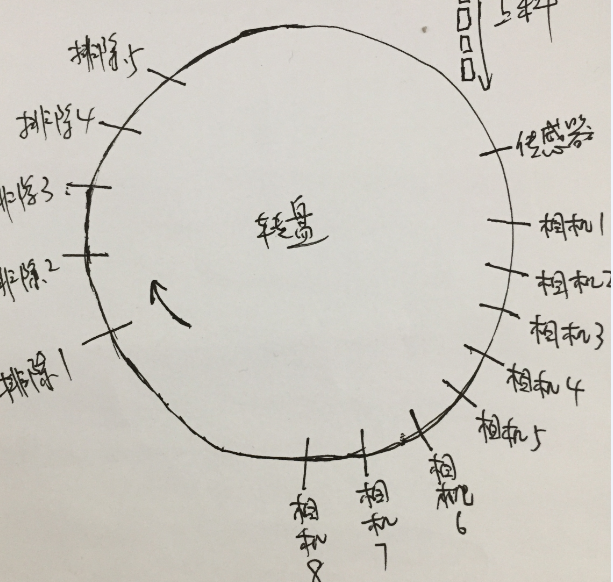 上料
排除5
传感器
排除4
排除3
转盘
相机1
排除2
相机2
相机3
排除1
相机4
相机5
相机6
相机7
相机8